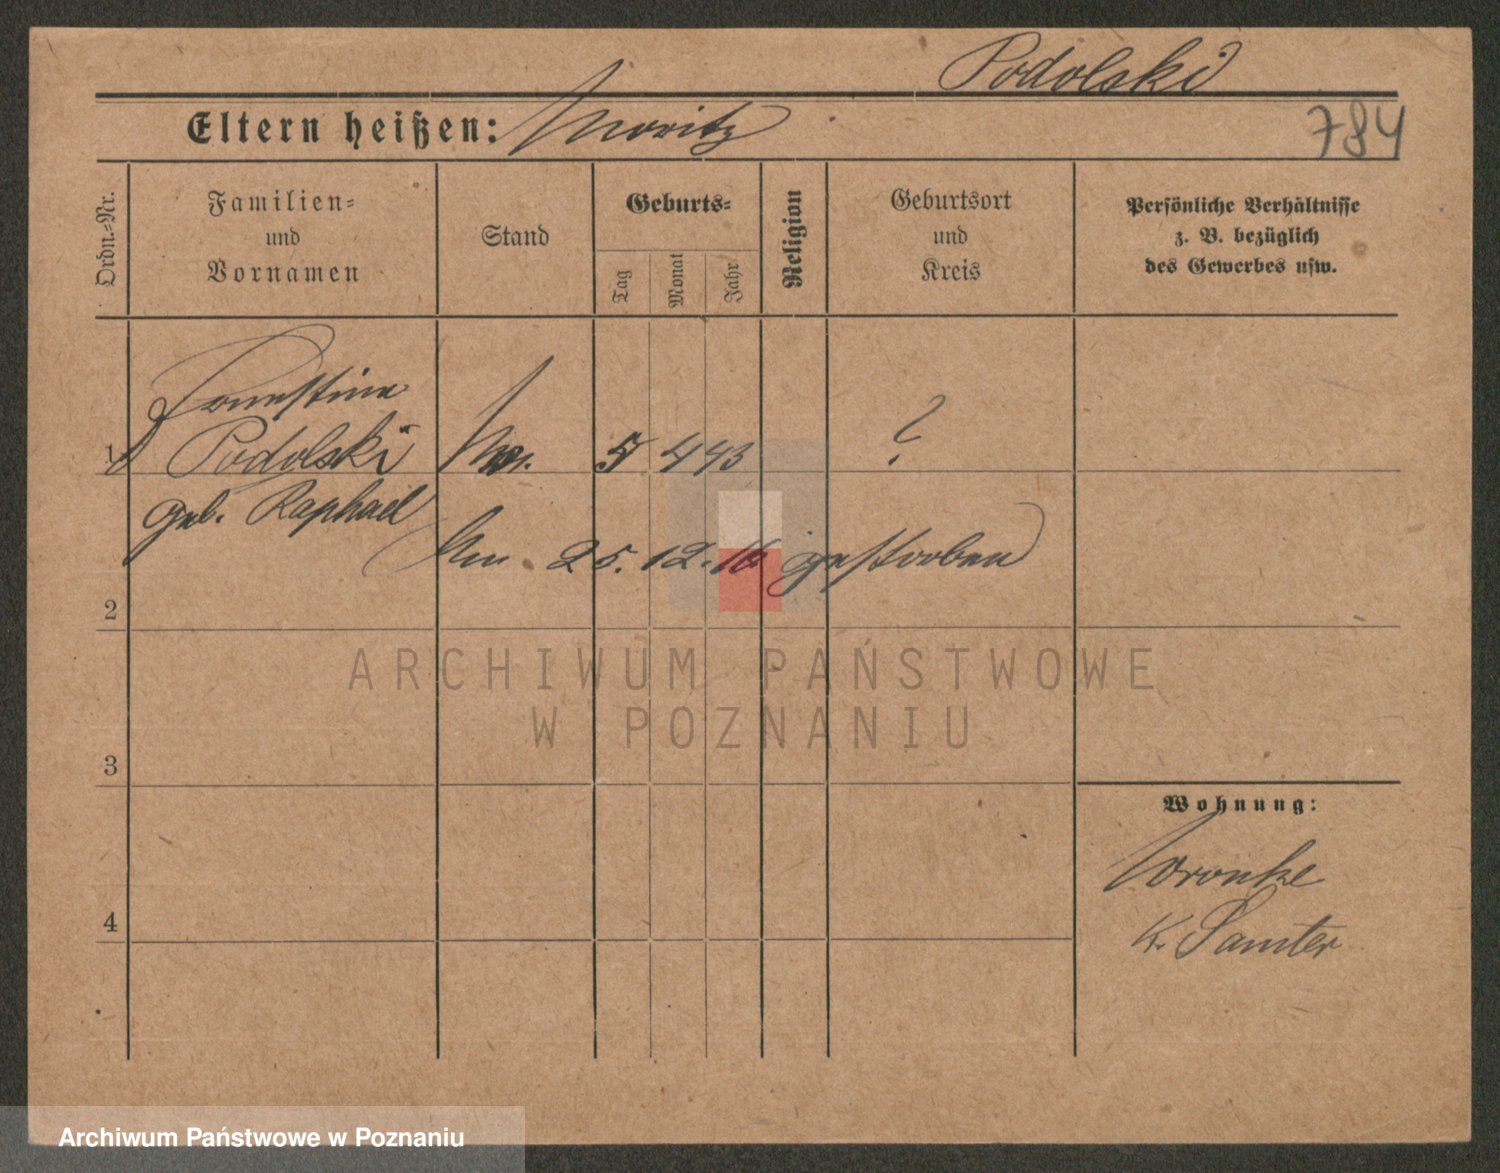 Podolski
Eltern heißen: Moritz
784
Ordn.-Nr.
Familien-
und
Vornamen
Stand
Geburts-
Tag
Monat
Jahr
Religion
Geburtsort
und
Kreis
Persönliche Verhältnisse
z. B. bezüglich
des Gewerbes usw.
1
Ernestine
Podolski
geb. Raphael
5 4 43
?
Am 25.12.16 gestorben
2
ARCHIWUM PAŃSTWOWE
W POZNANIU
3
Wohnung:
Wronke
K. Samter
4
Archiwum Państwowe w Poznaniu